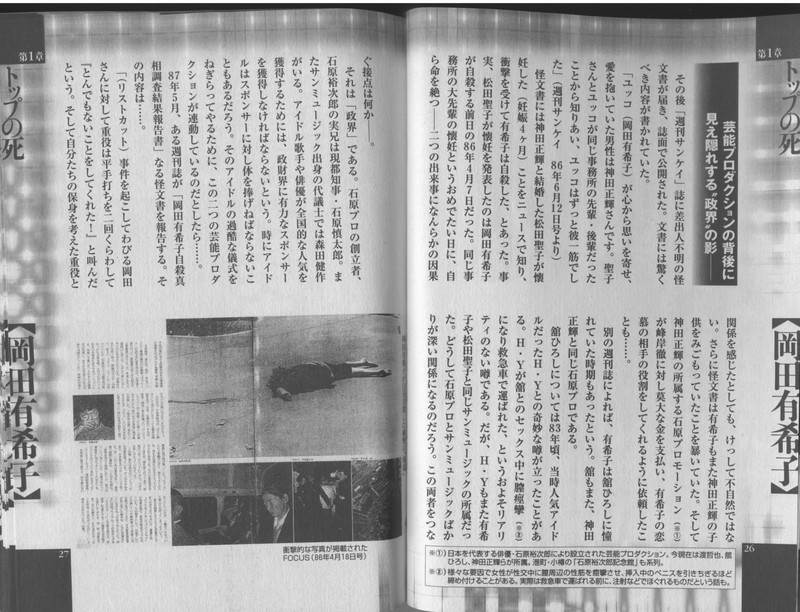 第1章
トップの死
【岡田有希子】
芸能プロダクションの背後に
見え隠れする“政界”の影――
その後「週刊サンケイ」誌に差出人不明の怪
文書が届き、誌面で公開された。文書には驚く
べき内容が書かれていた。
「ユッコ（岡田有希子）が心から思いを寄せ、
愛を抱いていた男性は神田正輝さんです。聖子
さんとユッコが同じ事務所の先輩・後輩だった
ことから知りあい、ユッコはずっと彼一筋でし
た」（週刊サンケイ　86年6月12日号より）
怪文書には神田正輝と結婚した松田聖子が懐
妊した（妊娠4ヶ月）ことをニュースで知り、
衝撃を受けて有希子は自殺した、とあった。事
実、松田聖子が懐妊を発表したのは岡田有希子
が自殺する前日の86年4月7日だった。同じ事
務所の大先輩の懐妊というおめでたい日に、自
ら命を絶つ――二つの出来事になんらかの因果
関係を感じたとしても、けっして不自然ではな
い。さらに怪文書は有希子もまた神田正輝の子
供をみごもっていたことを暴いていた。そして
神田正輝の所属する石原プロモーション（※①）
が峰岸徹に対し莫大な金を支払い、有希子の恋
慕の相手の役割をしてくれるように依頼したこ
とも……。
別の週刊誌によれば、有希子は舘ひろしに憧
れていた時期もあったという。舘もまた、神田
正輝と同じ石原プロである。
舘ひろしについては83年頃、当時人気アイド
ルだったH・Yとの奇妙な噂が立ったことがあ
る。H・Yが舘とのセックス中に膣痙攣（※②）
になり救急車で運ばれた、というおよそリアリ
ティのない噂である。だが、H・Yもまた有希
子や松田聖子と同じサンミュージックの所属だっ
た。どうして石原プロとサンミュージックばか
りが深い関係になるのだろう。この両者をつな
26
※①）日本を代表する俳優・石原裕次郎により設立された芸能プロダクション。今現在は渡哲也、舘
ひろし、神田正輝らが所属。港町・小樽の「石原裕次郎記念館」も系列。
※②）様々な要因で女性が性交中に膣周辺の性筋を痙攣させ、挿入中のペニスを引きちぎるほど
締め付けることがある。実際は救急車で運ばれる前に、注射などでほぐれるものだという話も。
第1章
トップの死
【岡田有希子】
ぐ接点は何か――。
それは「政界」である。石原プロの創立者、
石原裕次郎の実兄は現都知事・石原慎太郎。ま
たサンミュージック出身の代議士では森田健作
がいる。アイドル歌手や俳優が全国的な人気を
獲得するためには、政財界に有力なスポンサー
を獲得しなければならないという。時にアイド
ルはスポンサーに対し体を捧げねばならないこ
ともあるだろう。そのアイドルの過酷な儀式を
ねぎらってやるために、この二つの芸能プロダ
クションが連動しているのだとしたら……。
87年5月、ある週刊誌が「岡田有希子自殺真
相調査結果報告書」なる怪文書を報告する。そ
の内容は……。
「（リストカット）事件を起こしてわびる岡田
さんに対して重役は平手打ちを二回くらわして
『とんでもないことをしてくれた！』と叫んだ
という。そして自分たちの保身を考えた重役と
衝撃的な写真が掲載された
FOCUS（86年4月18日号）
27